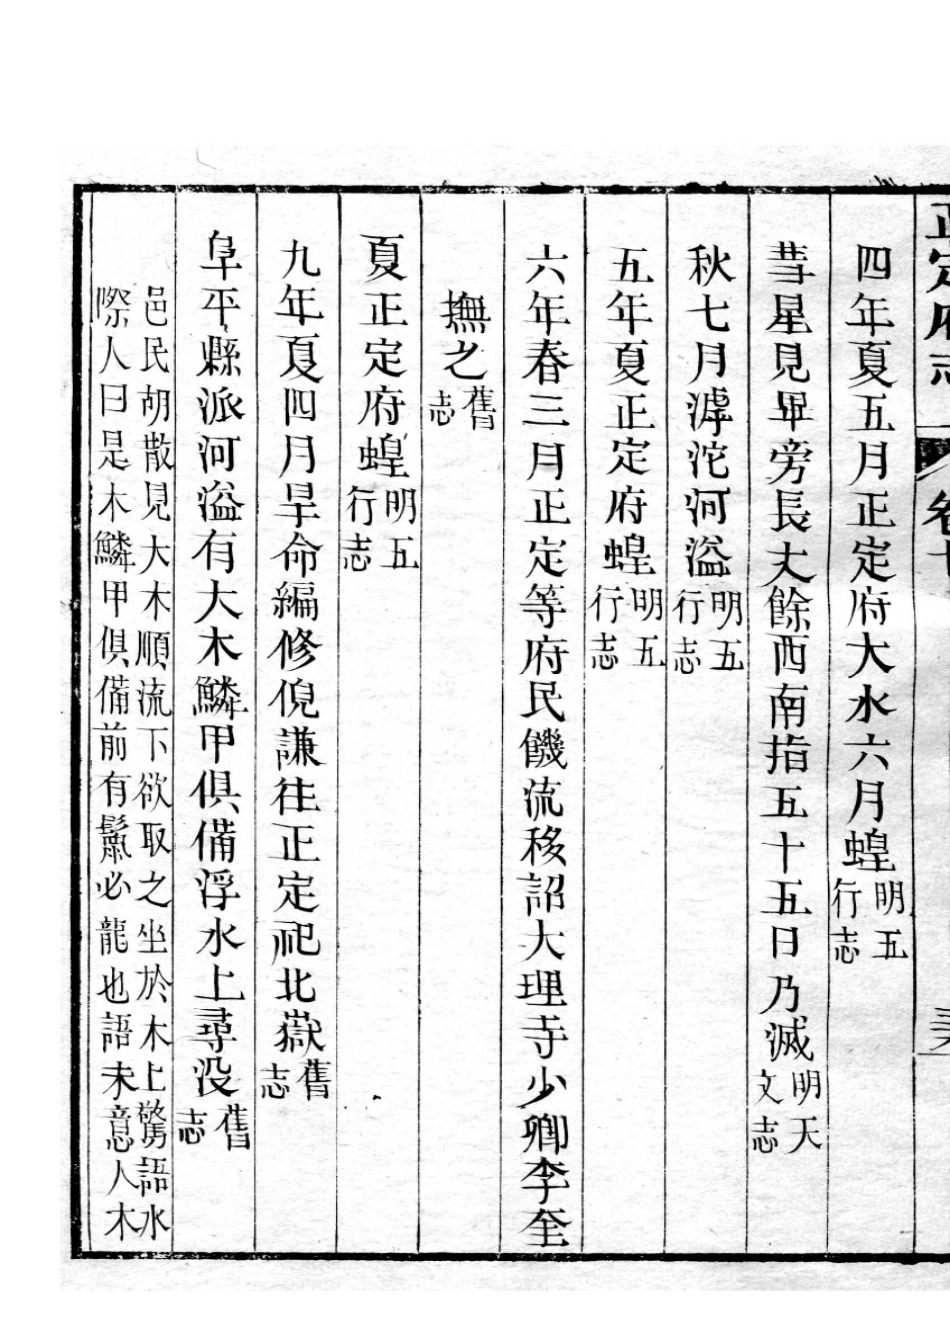 正定府志
卷七
四年夏五月正定府大水六月蝗明五行志
彗星見畢旁長丈餘西南指五十五日乃滅明天文志
秋七月滹沱河溢明五行志
五年夏正定府蝗明五行志
六年春三月正定等府民饑流移詔大理寺少卿李奎
撫之舊志
夏正定府蝗明五行志
九年夏四月旱命編修倪謙往正定祀北嶽舊志
阜平縣派河溢有大木鱗甲俱備浮水上尋没舊志
邑民胡散見大木順流下欲取之坐於木上驚語水
際人曰是木鱗甲俱備前有鬣必龍也語未意人木